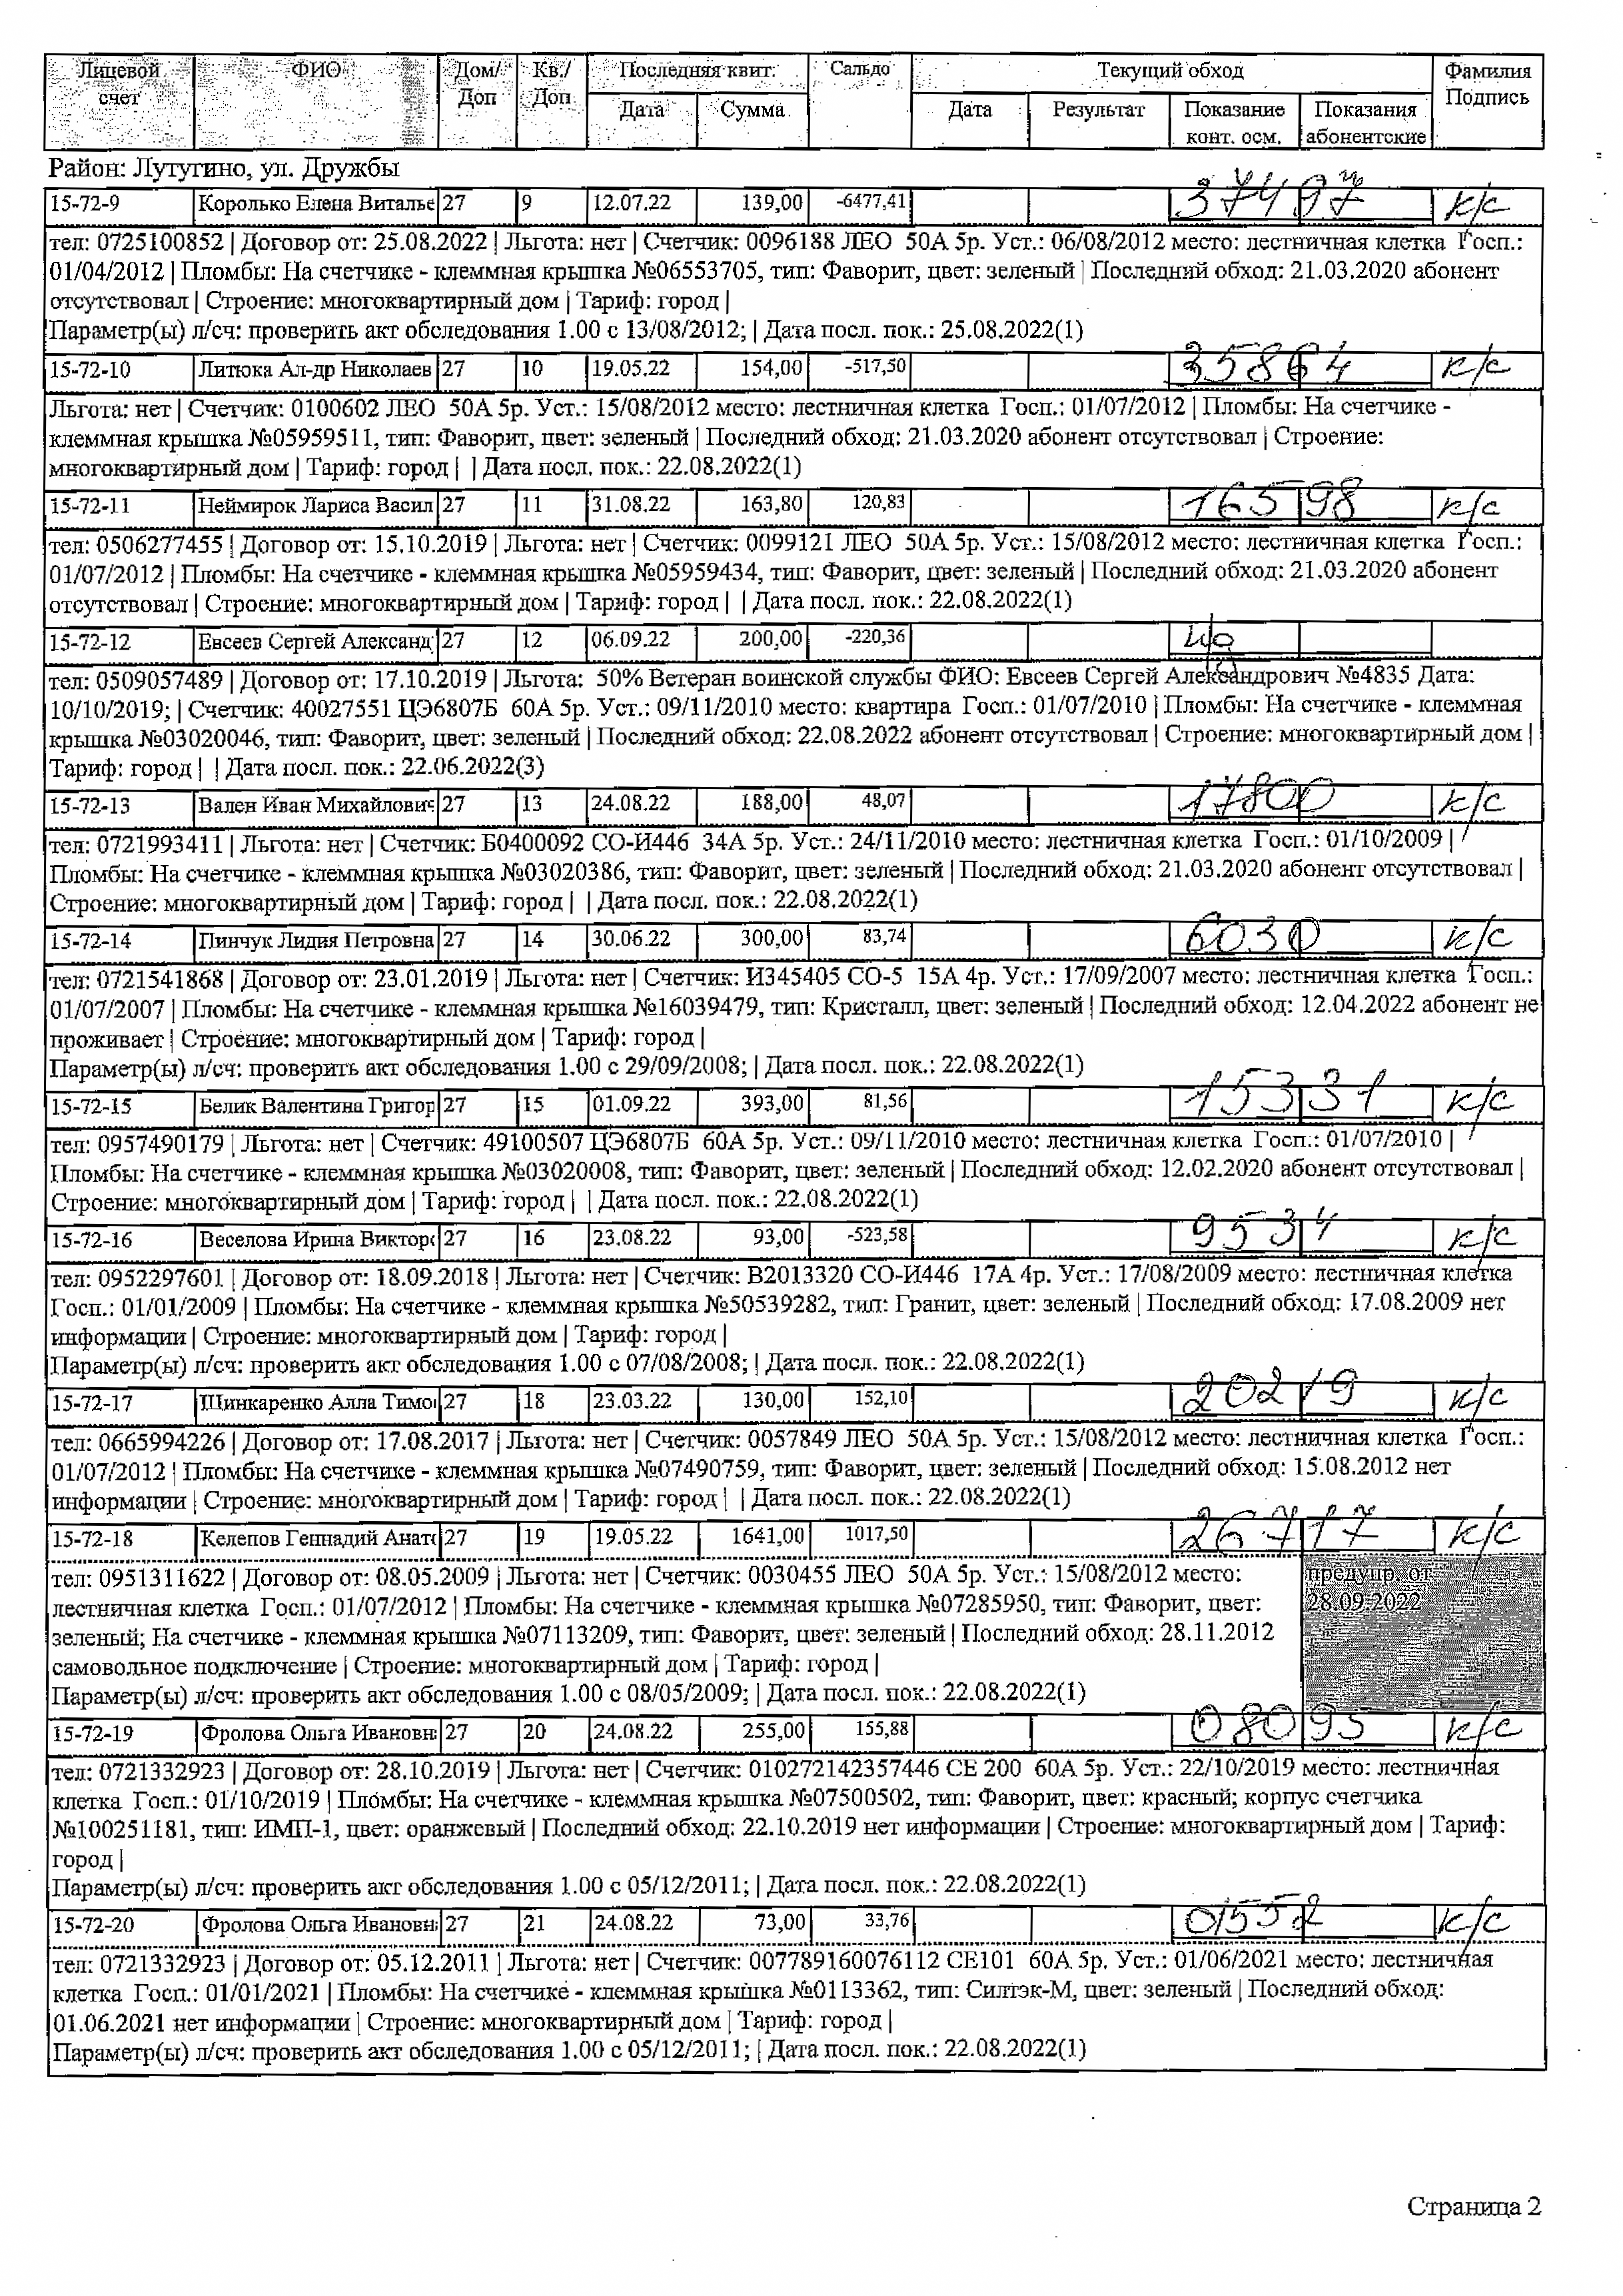 Лицевой счет ФИО Дом/Доп Кв./Доп Последняя квит. Сальдо Текущий обход Фамилия Подпись
Дата Сумма Дата Результат Показание конт. осм. Показания абонентские
Район: Лутугино, ул. Дружбы
15-72-9 Королько Елена Виталье 27 9 12.07.22 139,00 -6477,41 37497 к/с
тел: 0725100852 | Договор от: 25.08.2022 | Льгота: нет | Счетчик: 0096188 ЛЕО 50А 5р. Уст.: 06/08/2012 место: лестничная клетка Госп.:
01/04/2012 | Пломбы: На счетчике - клеммная крышка №06553705, тип: Фаворит, цвет: зеленый | Последний обход: 21.03.2020 абонент
отсутствовал | Строение: многоквартирный дом | Тариф: город |
Параметр(ы) л/сч: проверить акт обследования 1.00 с 13/08/2012; | Дата посл. пок.: 25.08.2022(1)
15-72-10 Литюка Ал-др Николаев 27 10 19.05.22 154,00 -517,50 35864 к/с
Льгота: нет | Счетчик: 0100602 ЛЕО 50А 5р. Уст.: 15/08/2012 место: лестничная клетка Госп.: 01/07/2012 | Пломбы: На счетчике -
клеммная крышка №05959511, тип: Фаворит, цвет: зеленый | Последний обход: 21.03.2020 абонент отсутствовал | Строение:
многоквартирный дом | Тариф: город | | Дата посл. пок.: 22.08.2022(1)
15-72-11 Неймирок Лариса Васил 27 11 31.08.22 163,80 120,83 16598 к/с
тел: 0506277455 | Договор от: 15.10.2019 | Льгота: нет | Счетчик: 0099121 ЛЕО 50А 5р. Уст.: 15/08/2012 место: лестничная клетка Госп.:
01/07/2012 | Пломбы: На счетчике - клеммная крышка №05959434, тип: Фаворит, цвет: зеленый | Последний обход: 21.03.2020 абонент
отсутствовал | Строение: многоквартирный дом | Тариф: город | | Дата посл. пок.: 22.08.2022(1)
15-72-12 Евсеев Сергей Александ 27 12 06.09.22 200,00 -220,36
тел: 0509057489 | Договор от: 17.10.2019 | Льгота: 50% Ветеран воинской службы ФИО: Евсеев Сергей Александрович №4835 Дата:
10/10/2019; | Счетчик: 40027551 ЦЭ6807Б 60А 5р. Уст.: 09/11/2010 место: квартира Госп.: 01/07/2010 | Пломбы: На счетчике - клеммная
крышка №03020046, тип: Фаворит, цвет: зеленый | Последний обход: 22.08.2022 абонент отсутствовал | Строение: многоквартирный дом |
Тариф: город | | Дата посл. пок.: 22.06.2022(3)
15-72-13 Вален Иван Михайлович 27 13 24.08.22 188,00 48,07 17800 к/с
тел: 0721993411 | Льгота: нет | Счетчик: Б0400092 СО-И446 34А 5р. Уст.: 24/11/2010 место: лестничная клетка Госп.: 01/10/2009 |
Пломбы: На счетчике - клеммная крышка №03020386, тип: Фаворит, цвет: зеленый | Последний обход: 21.03.2020 абонент отсутствовал |
Строение: многоквартирный дом | Тариф: город | | Дата посл. пок.: 22.08.2022(1)
15-72-14 Пинчук Лидия Петровна 27 14 30.06.22 300,00 83,74 6030 к/с
тел: 0721541868 | Договор от: 23.01.2019 | Льгота: нет | Счетчик: И345405 СО-5 15А 4р. Уст.: 17/09/2007 место: лестничная клетка Госп.:
01/07/2007 | Пломбы: На счетчике - клеммная крышка №16039479, тип: Кристалл, цвет: зеленый | Последний обход: 12.04.2022 абонент не
проживает | Строение: многоквартирный дом | Тариф: город |
Параметр(ы) л/сч: проверить акт обследования 1.00 с 29/09/2008; | Дата посл. пок.: 22.08.2022(1)
15-72-15 Белик Валентина Григор 27 15 01.09.22 393,00 81,56 15331 к/с
тел: 0957490179 | Льгота: нет | Счетчик: 49100507 ЦЭ6807Б 60А 5р. Уст.: 09/11/2010 место: лестничная клетка Госп.: 01/07/2010 |
Пломбы: На счетчике - клеммная крышка №03020008, тип: Фаворит, цвет: зеленый | Последний обход: 12.02.2020 абонент отсутствовал |
Строение: многоквартирный дом | Тариф: город | | Дата посл. пок.: 22.08.2022(1)
15-72-16 Веселова Ирина Викторо 27 16 23.08.22 93,00 -523,58 9534 к/с
тел: 0952297601 | Договор от: 18.09.2018 | Льгота: нет | Счетчик: В2013320 СО-И446 17А 4р. Уст.: 17/08/2009 место: лестничная клетка
Госп.: 01/01/2009 | Пломбы: На счетчике - клеммная крышка №50539282, тип: Гранит, цвет: зеленый | Последний обход: 17.08.2009 нет
информации | Строение: многоквартирный дом | Тариф: город |
Параметр(ы) л/сч: проверить акт обследования 1.00 с 07/08/2008; | Дата посл. пок.: 22.08.2022(1)
15-72-17 Шинкаренко Алла Тимо 27 18 23.03.22 130,00 152,10 20219 к/с
тел: 0665994226 | Договор от: 17.08.2017 | Льгота: нет | Счетчик: 0057849 ЛЕО 50А 5р. Уст.: 15/08/2012 место: лестничная клетка Госп.:
01/07/2012 | Пломбы: На счетчике - клеммная крышка №07490759, тип: Фаворит, цвет: зеленый | Последний обход: 15.08.2012 нет
информации | Строение: многоквартирный дом | Тариф: город | | Дата посл. пок.: 22.08.2022(1)
15-72-18 Келепов Геннадий Анато 27 19 19.05.22 1641,00 1017,50 26717 к/с
тел: 0951311622 | Договор от: 08.05.2009 | Льгота: нет | Счетчик: 0030455 ЛЕО 50А 5р. Уст.: 15/08/2012 место: предупр. от
лестничная клетка Госп.: 01/07/2012 | Пломбы: На счетчике - клеммная крышка №07285950, тип: Фаворит, цвет: 28.09.2022
зеленый; На счетчике - клеммная крышка №07113209, тип: Фаворит, цвет: зеленый | Последний обход: 28.11.2012
самовольное подключение | Строение: многоквартирный дом | Тариф: город |
Параметр(ы) л/сч: проверить акт обследования 1.00 с 08/05/2009; | Дата посл. пок.: 22.08.2022(1)
15-72-19 Фролова Ольга Ивановн 27 20 24.08.22 255,00 155,88 08095 к/с
тел: 0721332923 | Договор от: 28.10.2019 | Льгота: нет | Счетчик: 010272142357446 СЕ 200 60А 5р. Уст.: 22/10/2019 место: лестничная
клетка Госп.: 01/10/2019 | Пломбы: На счетчике - клеммная крышка №07500502, тип: Фаворит, цвет: красный; корпус счетчика
№100251181, тип: ИМП-1, цвет: оранжевый | Последний обход: 22.10.2019 нет информации | Строение: многоквартирный дом | Тариф:
город |
Параметр(ы) л/сч: проверить акт обследования 1.00 с 05/12/2011; | Дата посл. пок.: 22.08.2022(1)
15-72-20 Фролова Ольга Ивановн 27 21 24.08.22 73,00 33,76 01552 к/с
тел: 0721332923 | Договор от: 05.12.2011 | Льгота: нет | Счетчик: 007789160076112 СЕ101 60А 5р. Уст.: 01/06/2021 место: лестничная
клетка Госп.: 01/01/2021 | Пломбы: На счетчике - клеммная крышка №0113362, тип: Силтэк-М, цвет: зеленый | Последний обход:
01.06.2021 нет информации | Строение: многоквартирный дом | Тариф: город |
Параметр(ы) л/сч: проверить акт обследования 1.00 с 05/12/2011; | Дата посл. пок.: 22.08.2022(1)
Страница 2